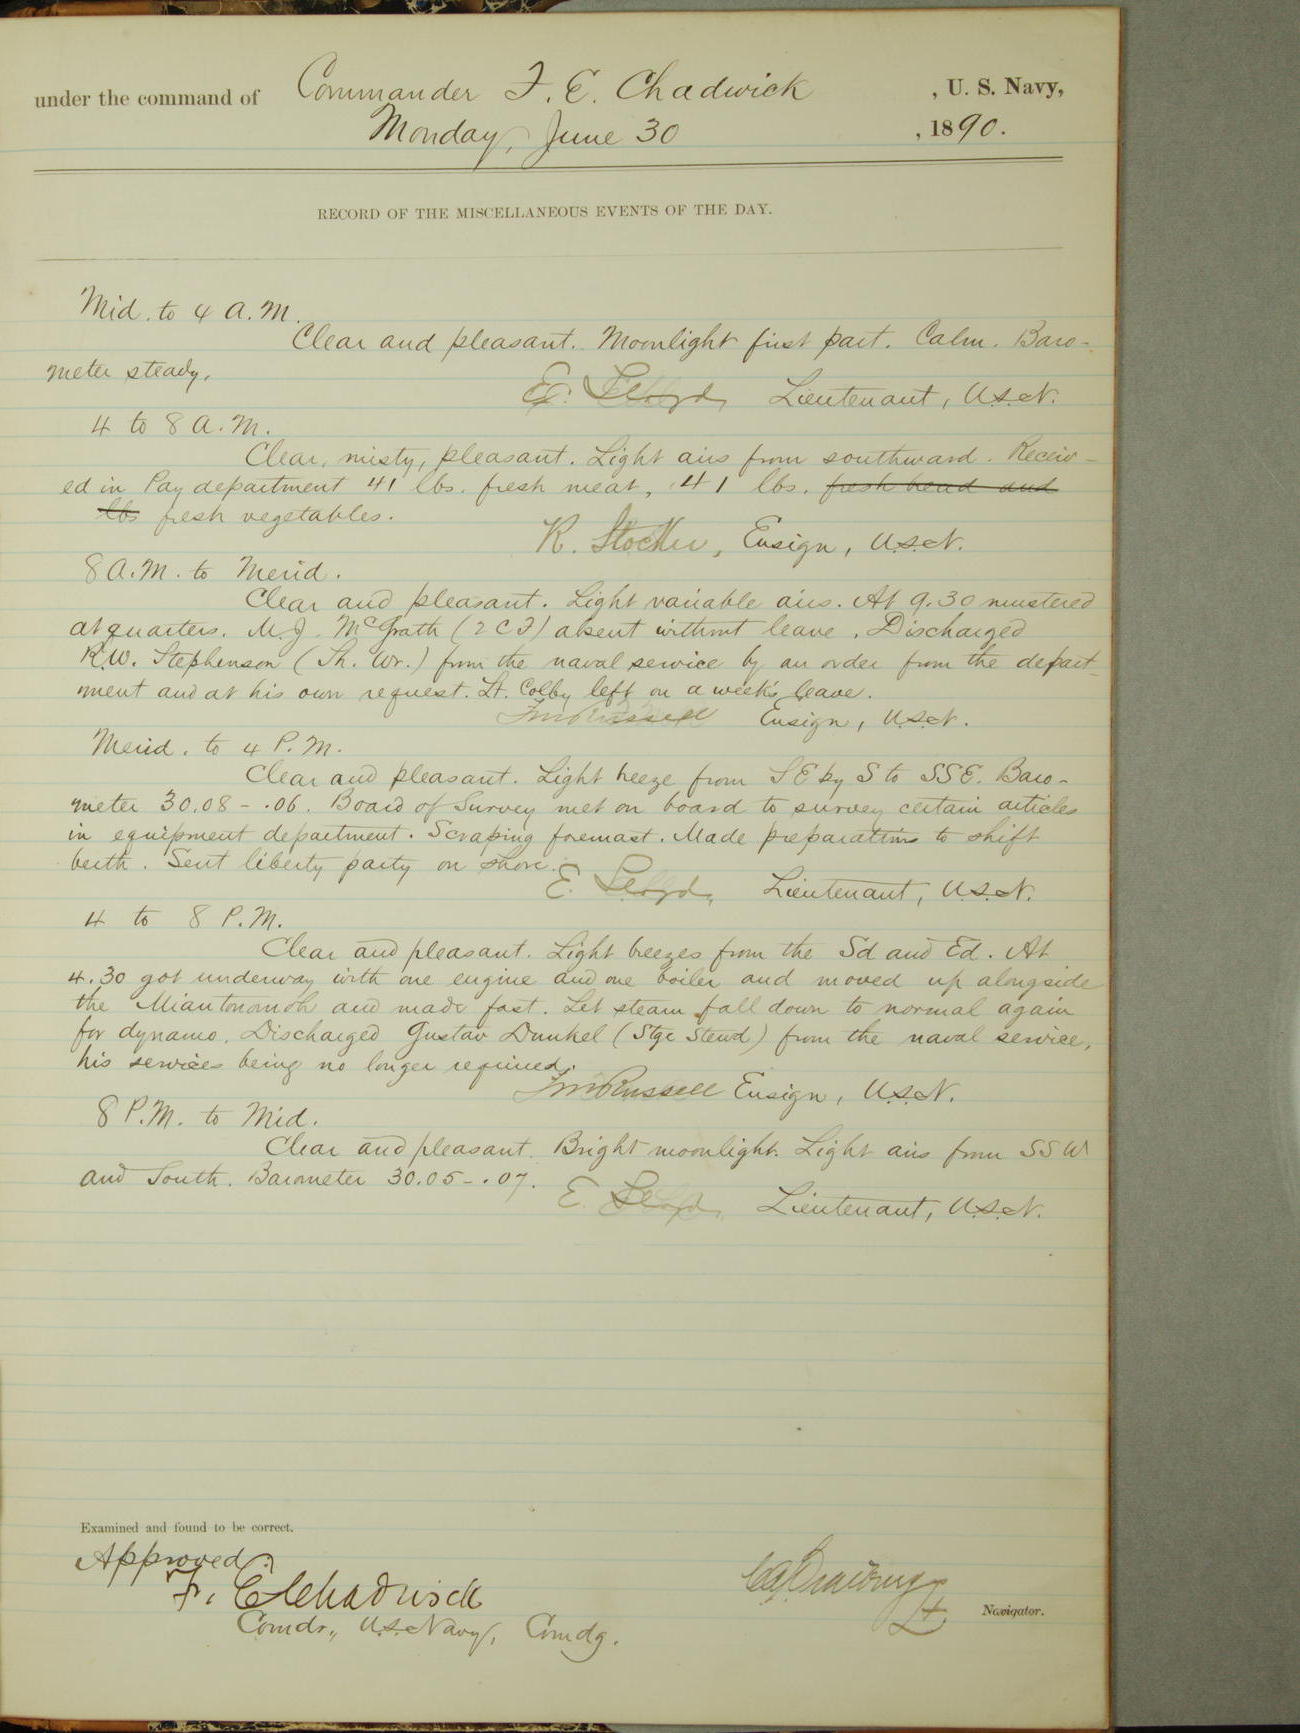 under the command of Commander F. E. Chadwick , U. S. Navy,
Monday, June 30 , 1890.
RECORD OF THE MISCELLANEOUS EVENTS OF THE DAY.
Mid. to 4 A.M.
Clear and pleasant. Moonlight first part. Calm. Baro-
meter steady.
E. Lloyd, Lieutenant, U.S.N.
4 to 8 A.M.
Clear, misty, pleasant. Light airs from southward. Receiv-
ed in Pay department 41 lbs. fresh meat, 41 lbs. fresh bread and
lbs fresh vegetables.
R. Stocker, Ensign, U.S.N.
8 A.M. to Merid.
Clear and pleasant. Light variable airs. At 9.30 mustered
at quarters. M.J. McGrath (2 C F) absent without leave. Discharged
R.W. Stephenson (Sh. Wr.) from the naval service by an order from the depart-
ment and at his own request. Lt. Colby left on a week's leave.
Ensign, U.S.N.
Merid. to 4 P.M.
Clear and pleasant. Light breeze from SE by S to SSE. Baro-
meter 30.08 - .06. Board of Survey met on board to survey certain articles
in equipment department. Scraping foremast. Made preparations to shift
berth. Sent liberty party on shore.
E. Lloyd, Lieutenant, U.S.N.
4 to 8 P.M.
Clear and pleasant. Light breezes from the Sd and Ed. At
4.30 got underway with one engine and one boiler and moved up alongside
the Miantonomoh and made fast. Let steam fall down to normal again
for dynamo. Discharged Gustav Dunkel (Stge Stewd) from the naval service,
his services being no longer required.
Russell Ensign, U.S.N.
8 P.M. to Mid.
Clear and pleasant. Bright moonlight. Light airs from SSW
and South. Barometer 30.05 - .07.
E. Lloyd, Lieutenant, U.S.N.
Examined and found to be correct.
Approved:
F. E. Chadwick
Comdr., U.S. Navy, Comdg.
Lt. Navigator.